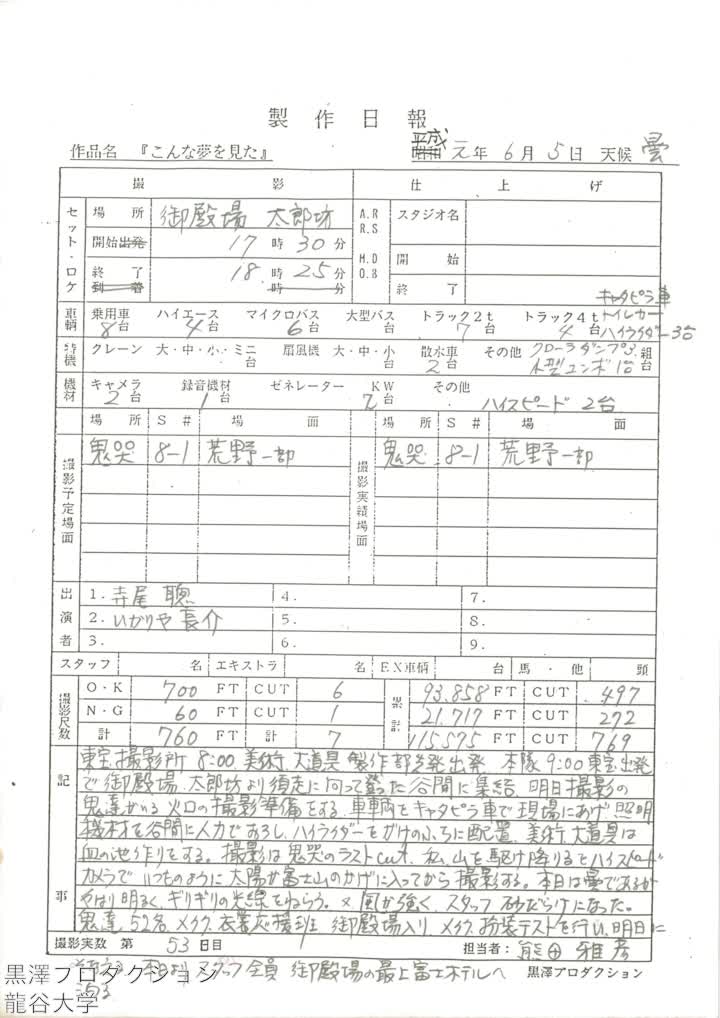 製作日報
作品名 『こんな夢を見た』 平成 元年 6月 5日 天候 曇
撮影 仕上げ
セット・ロケ 場所 御殿場 太郎坊 A.R R.S スタジオ名
開始出発 17時30分 M.D O.B 開始
終了到着 18時25分 終了
時 分
キャタピラ車
車輌 乗用車 8台 ハイエース 4台 マイクロバス 6台 大型バス 台 トラック2t 7台 トラック4t 4台 トイレカー
ハイライダー 3台
特機 クレーン 大・中・小・ミニ 台 扇風機 大・中・小 台 散水車 2台 その他 クローラダンプ3 組台
小型ユンボ1台
機材 キャメラ 2台 録音機材 1台 ゼネレーター KW 2台 その他 ハイスピード 2台
場所 S# 場面 場所 S# 場面
撮影予定場面 鬼哭 8-1 荒野一部 撮影実績場面 鬼哭 8-1 荒野一部
出演者 1. 寺尾聰 4. 7.
2. いかりや長介 5. 8.
3. 6. 9.
スタッフ 名 エキストラ 名 EX車輌 台 馬・他 頭
撮影尺数 O・K 700 FT CUT 6 累計 93.858 FT CUT 497
N・G 60 FT CUT 1 21.717 FT CUT 272
計 760 FT 計 7 115.575 FT CUT 769
記事 東宝撮影所 8:00 美術、大道具 製作部先発出発 本隊 9:00東宝出発
で御殿場、太郎坊より須走に向って登った谷間に集結、明日撮影の
鬼達がいる火口の撮影準備をする、車輌をキャタピラ車で現場にあげ、照明
機材を谷間に人力でおろし、ハイライダーをがけのふちに配置、美術、大道具は
血の池作りをする。撮影は鬼哭のラストcut、私、山を駆け降りるとハイスピード
カメラで いつものように太陽が富士山のかげに入ってから撮影する。本日は曇であるが
やはり明るく、ギリギリの光線をねらう。× 風が強く、スタッフ砂だらけになった。
鬼達 52名、メイク、衣裳応援班 御殿場入り メイク、扮装テストを行い、明日に
撮影実数 第 53日目 担当者：熊田雅彦
そなえる 本日よりスタッフ全員 御殿場の最上富士ホテルへ
泊る
黒澤プロダクション
黒澤プロダクション
龍谷大学